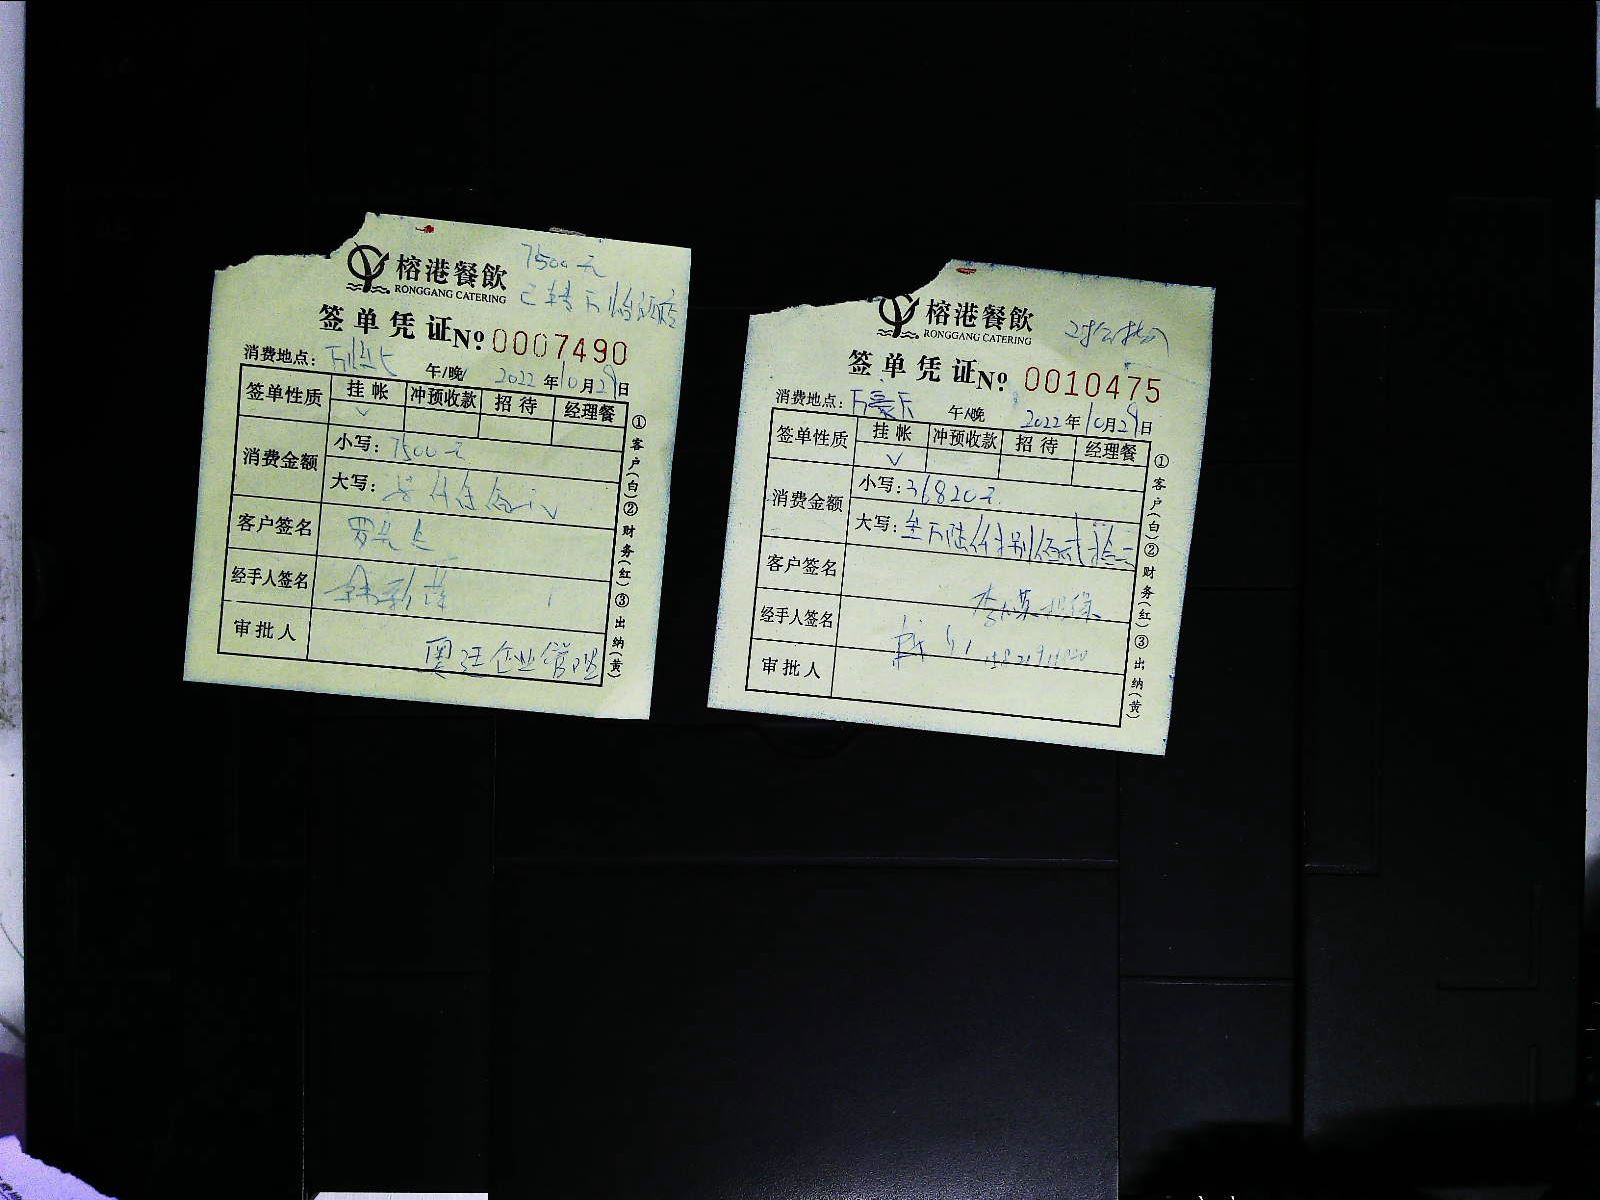 榕港餐飲
RONGGANG CATERING
7500元
已转万怡酒店
签单凭证 Nº 0007490
消费地点:
午/晚 2022年10月29日
签单性质 挂帐 冲预收款 招待 经理餐
✓
消费金额
小写: 7500元
大写:
客户签名
经手人签名
审批人
企业管理
①客户(白)②财务(红)③出纳(黄)
榕港餐飲
RONGGANG CATERING
签单凭证 Nº 0010475
消费地点: 万豪
午/晚 2022年10月29日
签单性质 挂帐 冲预收款 招待 经理餐
✓
消费金额
小写: 36820元
大写: 叁万陆仟捌佰贰拾元
客户签名
经手人签名
审批人
①客户(白)②财务(红)③出纳(黄)